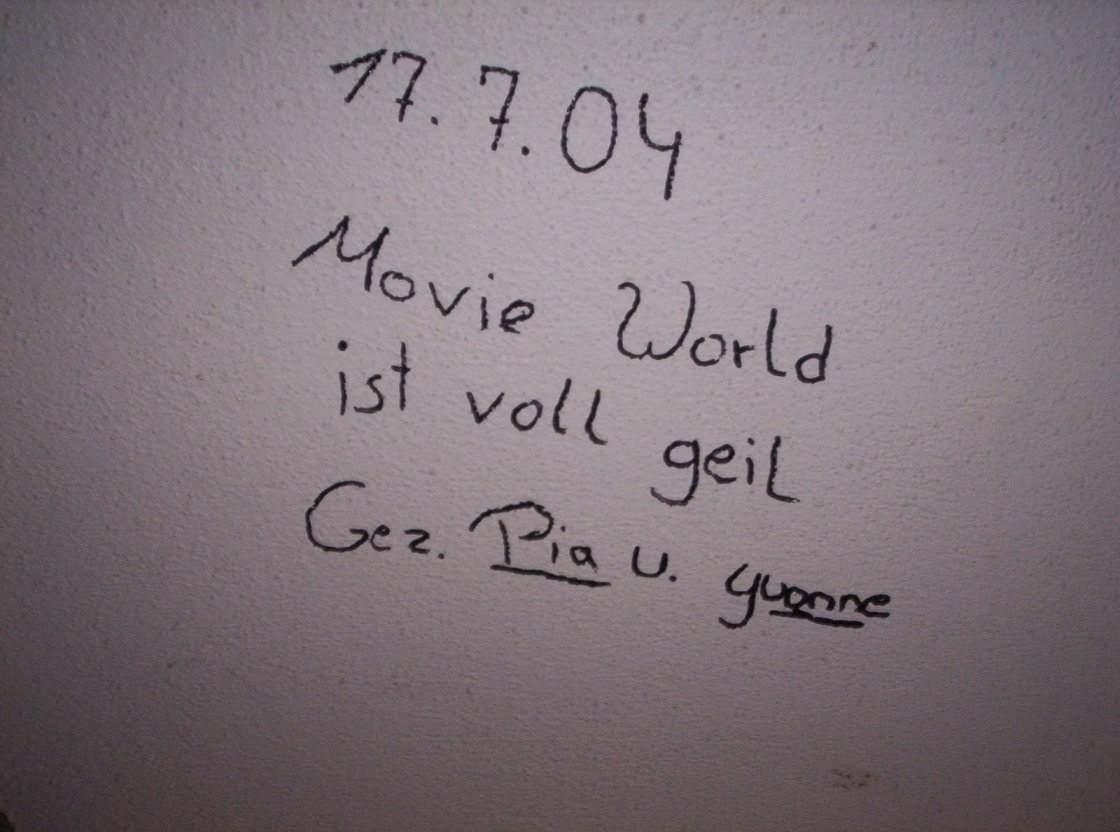 17.7.04
Movie World
ist voll geil
Gez. Pia u. yvonne